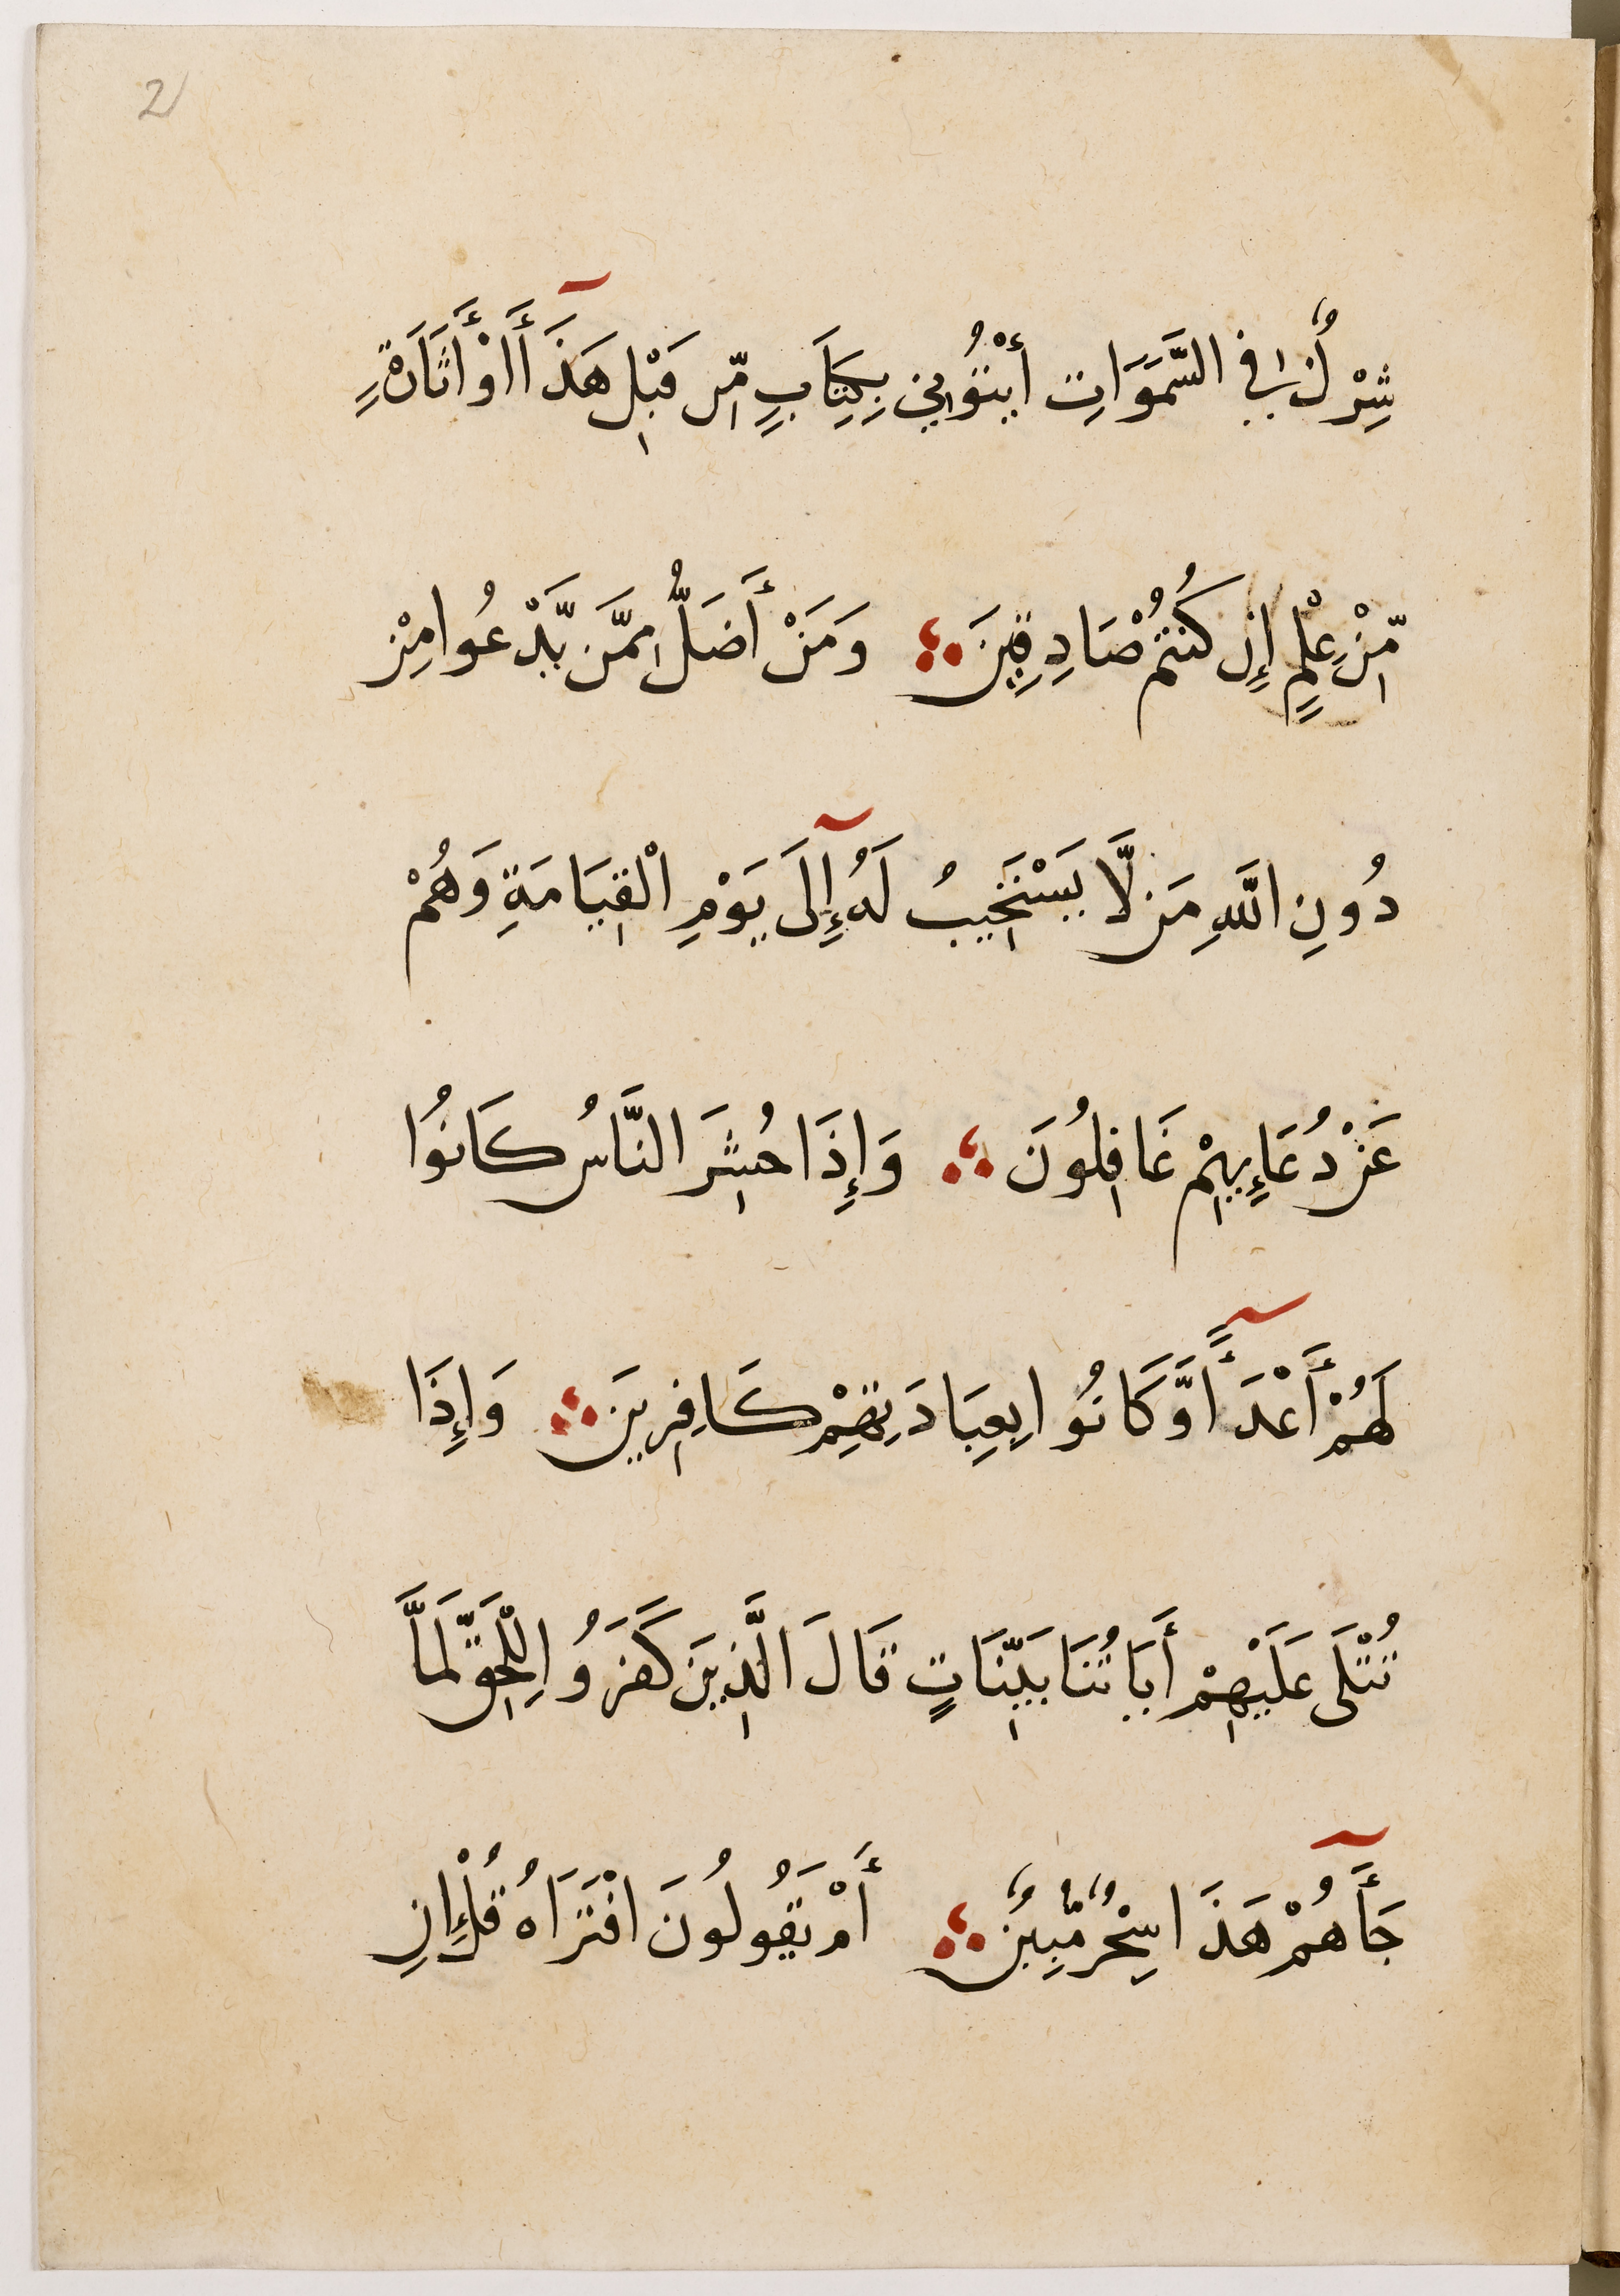 2
شِرْكٌ فِي السَّمَوَاتِ أيْتُوُنِي بِكِتَابٍ مِّن قَبْلِ هَذَا أَوْ أَثَارَةٍ
مِّنْ عِلْمٍ إِن كُنتُمْ صَادِقِينَ ؞ وَمَنْ أَضَلُّ مِمَّن يَّدْعُوا مِنْ
دُونِ اللَّهِ مَن لَّا يَسْتَجِيبُ لَهُ إِلَى يَوْمِ الْقِيَامَةِ وَهُمْ
عَنْ دُعَاءِيهِمْ غَافِلُونَ ؞ وَإِذَا حُشِرَ النَّاسُ كَانُوا
لَهُمْ أَعْدَآءً وَّكَانُوا بِعِبَادَتِهِمْ كَافِرِينَ ؞ وَإِذَا
تُتْلَى عَلَيْهِمْ أَيَاتُنَا بَيِّنَاتٍ قَالَ الَّذِينَ كَفَرُوا لِلْحَقِّ لَمَّا
جَآَءَهُمْ هَذَا سِحْرٌ مُّبِينٌ ؞ أَمْ يَقُولُونَ افْتَرَاهُ قُلْ إِنِ